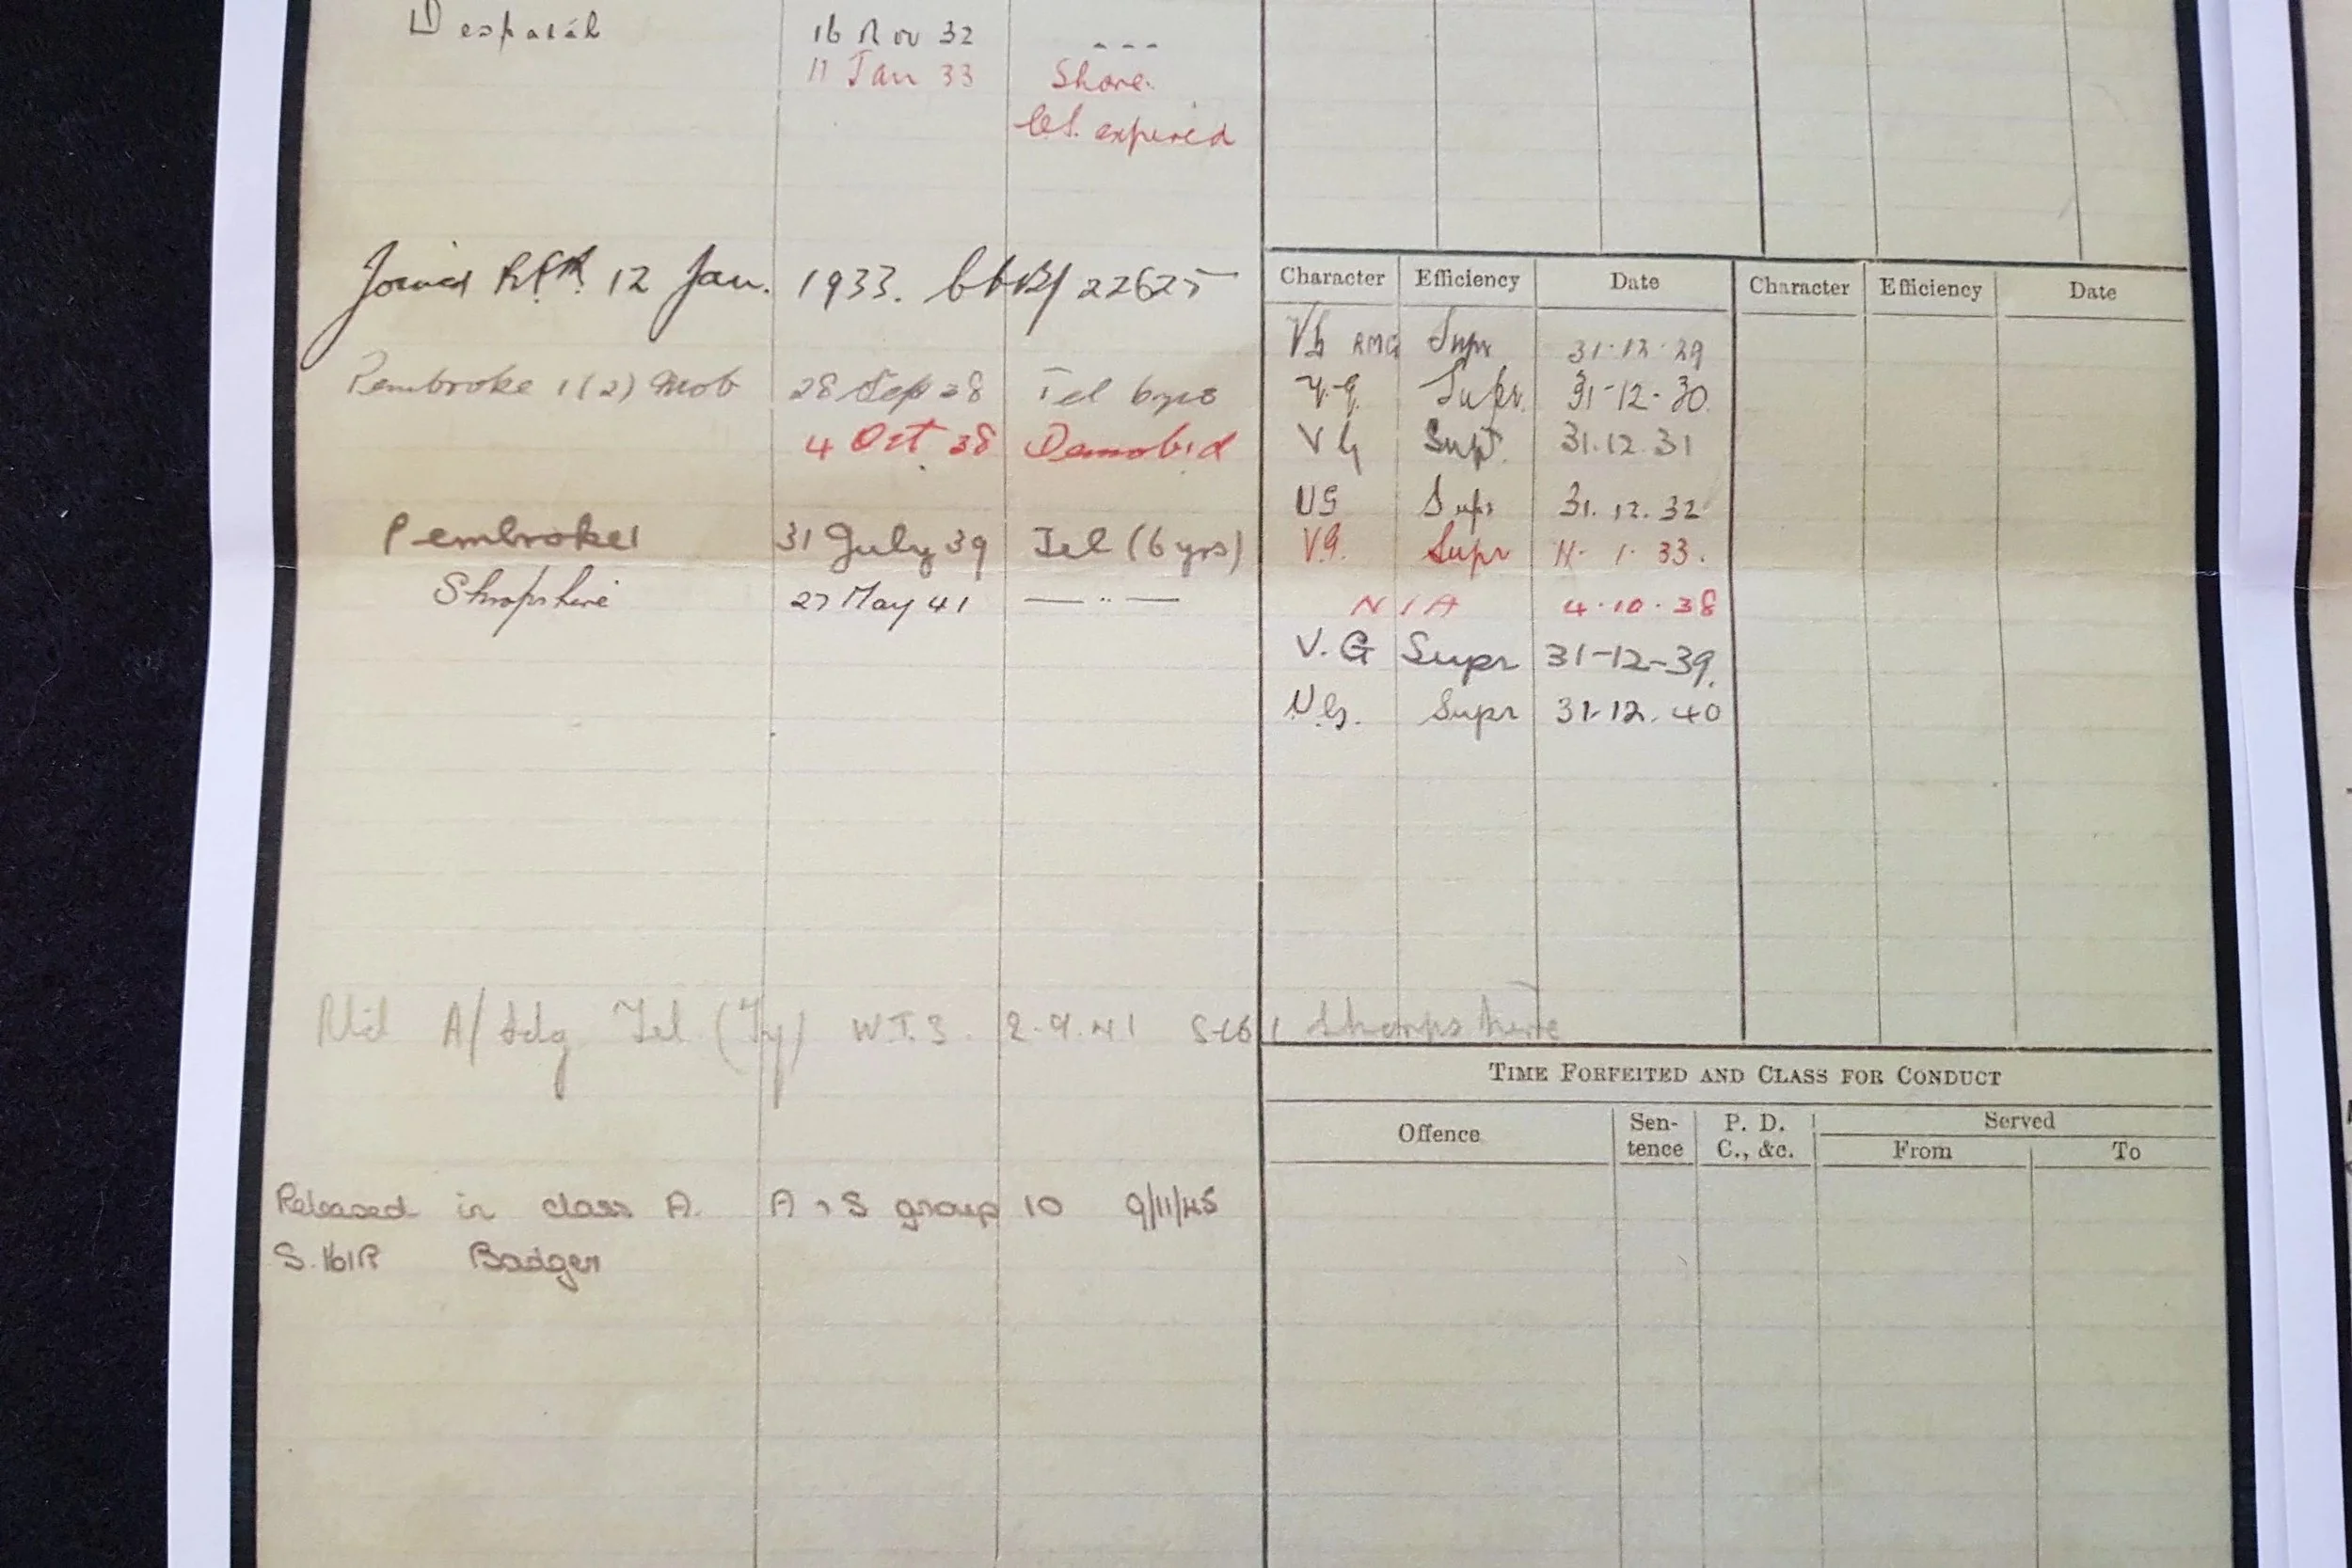 Despatch 16 Nov 32 - - -
11 Jan 33 Shore.
C.S. expired
Joined R.F.R. 12 Jan. 1933. 22625
Pembroke 1 (2) Mob 28 Sep 38 Tel 6yrs
4 Oct 38 Demobid
Pembroke 1 31 July 39 Tel (6 yrs)
Shropshire 27 May 41 — " —
Character Efficiency Date Character Efficiency Date
VG RMG Supr 31-12-29
V.G. Supr. 31-12-30.
VG Supr. 31.12.31
VG Supr 31.12.32
V.G. Supr 11-1-33.
N/A 4-10-38
V.G Supr 31-12-39.
V.G. Supr 31.12.40
A/Ldg Tel (Ty) W.T.3. 2-9-41 Shropshire
TIME FORFEITED AND CLASS FOR CONDUCT
Offence Sen-tence P. D. C., &c. Served
From To
Released in class A. A & S group 10 9/11/45
Badger